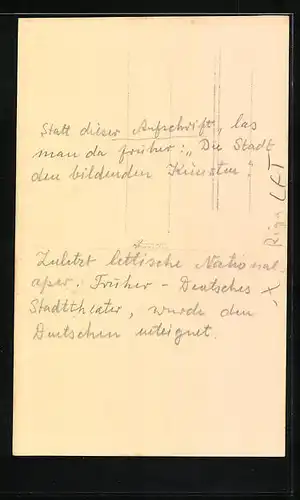 Statt dieser Aufschrift, las
man da früher: „Die Stadt
den bildenden Künsten."
Zuletzt lettische National-
oper. Früher - Deutsches
Stadttheater, wurde den
Deutschen enteignet.
Riga LET